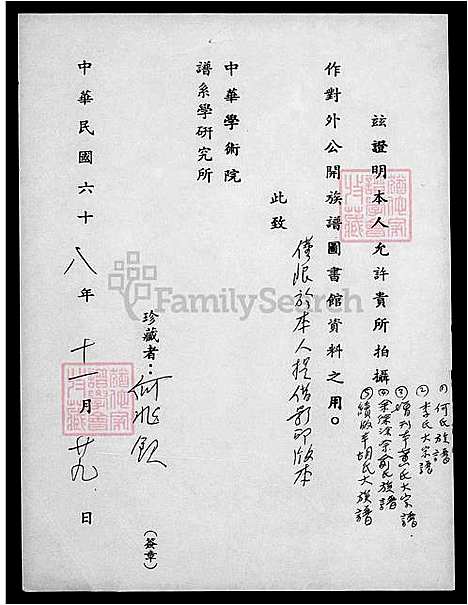 玆證明本人允許貴所拍攝
(1) 何氏族譜
(2) 李氏大宗譜
(3) 增刊本黃氏大宗譜
(4) 余徐涂佘俞氏族譜
(5) 續版本胡氏大族譜
作對外公開族譜圖書館資料之用。
僅限於本人提借影印版本
此致
中華學術院
譜系學研究所
珍藏者：何兆欽
(簽章)
中華民國六十八年十一月廿九日
FamilySearch